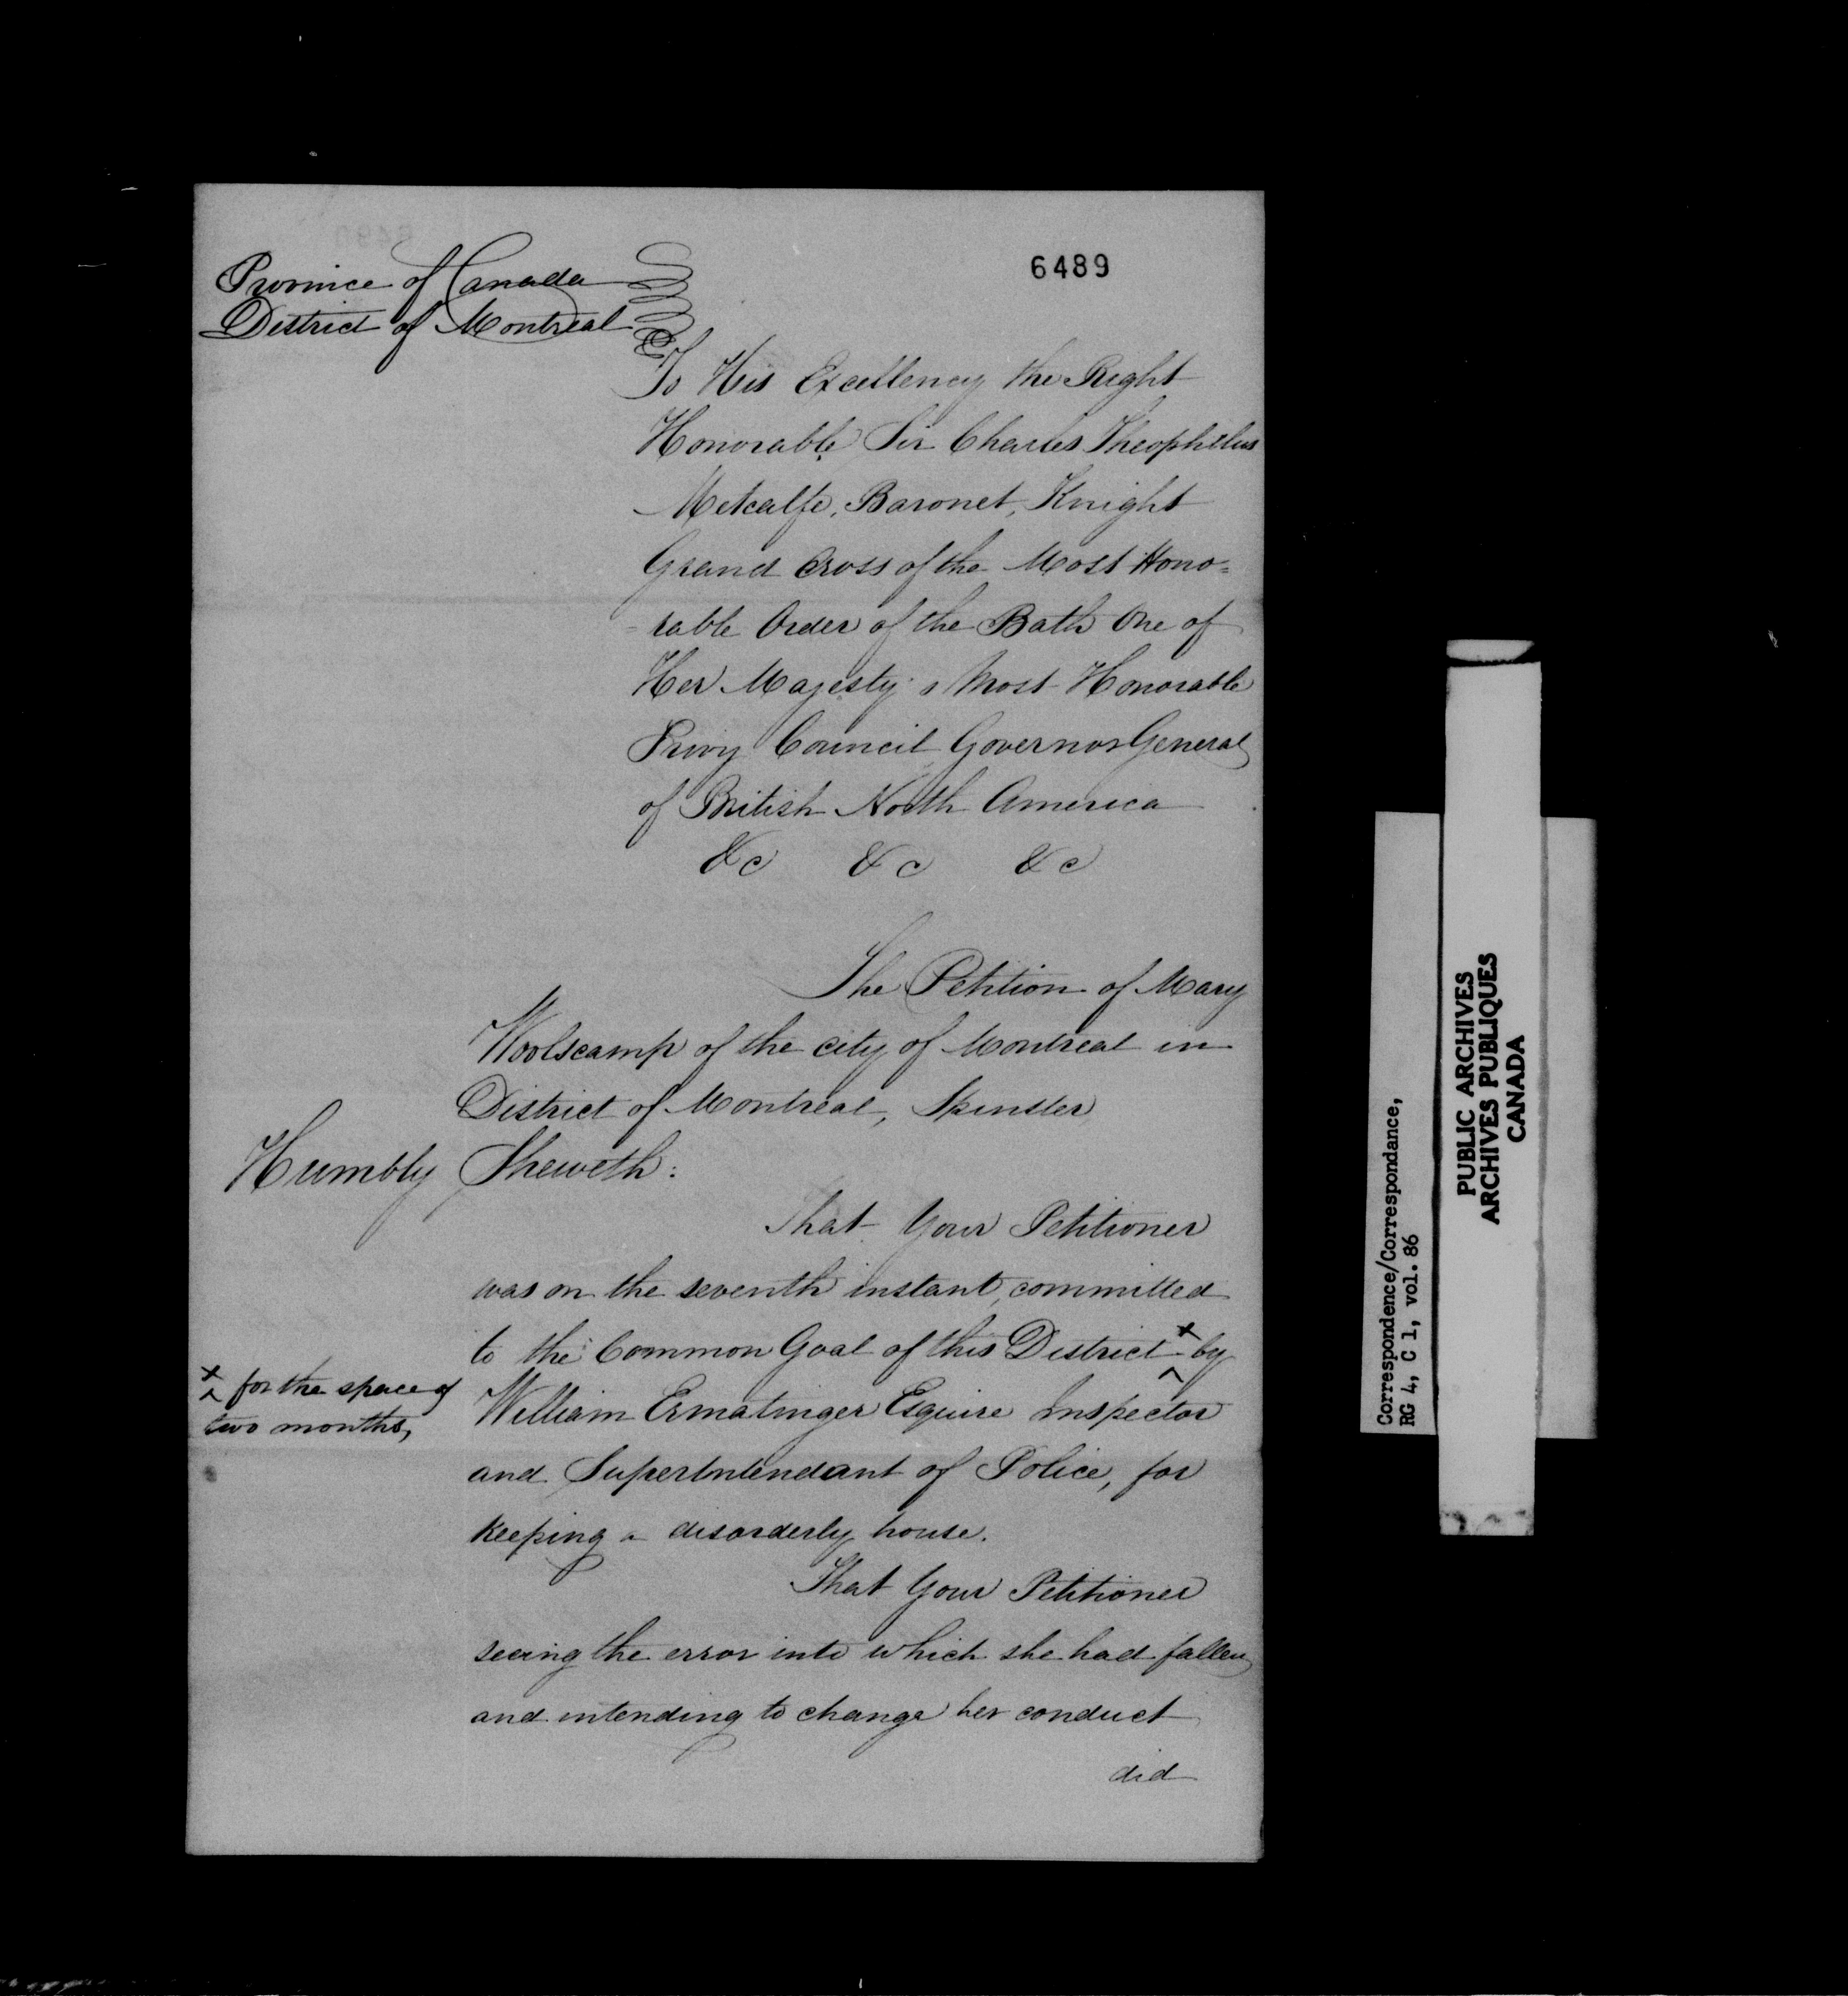 6489
Province of Canada
District of Montreal
To His Excellency the Right
Honorable Sir Charles Theophilus
Metcalfe, Baronet, Knight
Grand Cross of the Most Hono=
-rable Order of the Bath One of
Her Majesty's Most Honorable
Privy Council Governor General
of British North America
&c &c &c
The Petition of Mary
Woolscamp of the city of Montreal in
District of Montreal, Spinster
Humbly Sheweth:
That Your Petitioner
was on the seventh instant, committed
to the Common Goal of this District x by
x for the space of
two months,
William Ermatinger Esquire Inspector
and Superintendant of Police, for
keeping a disorderly house.
That Your Petitioner
seeing the error into which she had fallen
and intending to change her conduct
did
Correspondence/Correspondance,
RG 4, C 1, vol. 86
PUBLIC ARCHIVES
ARCHIVES PUBLIQUES
CANADA